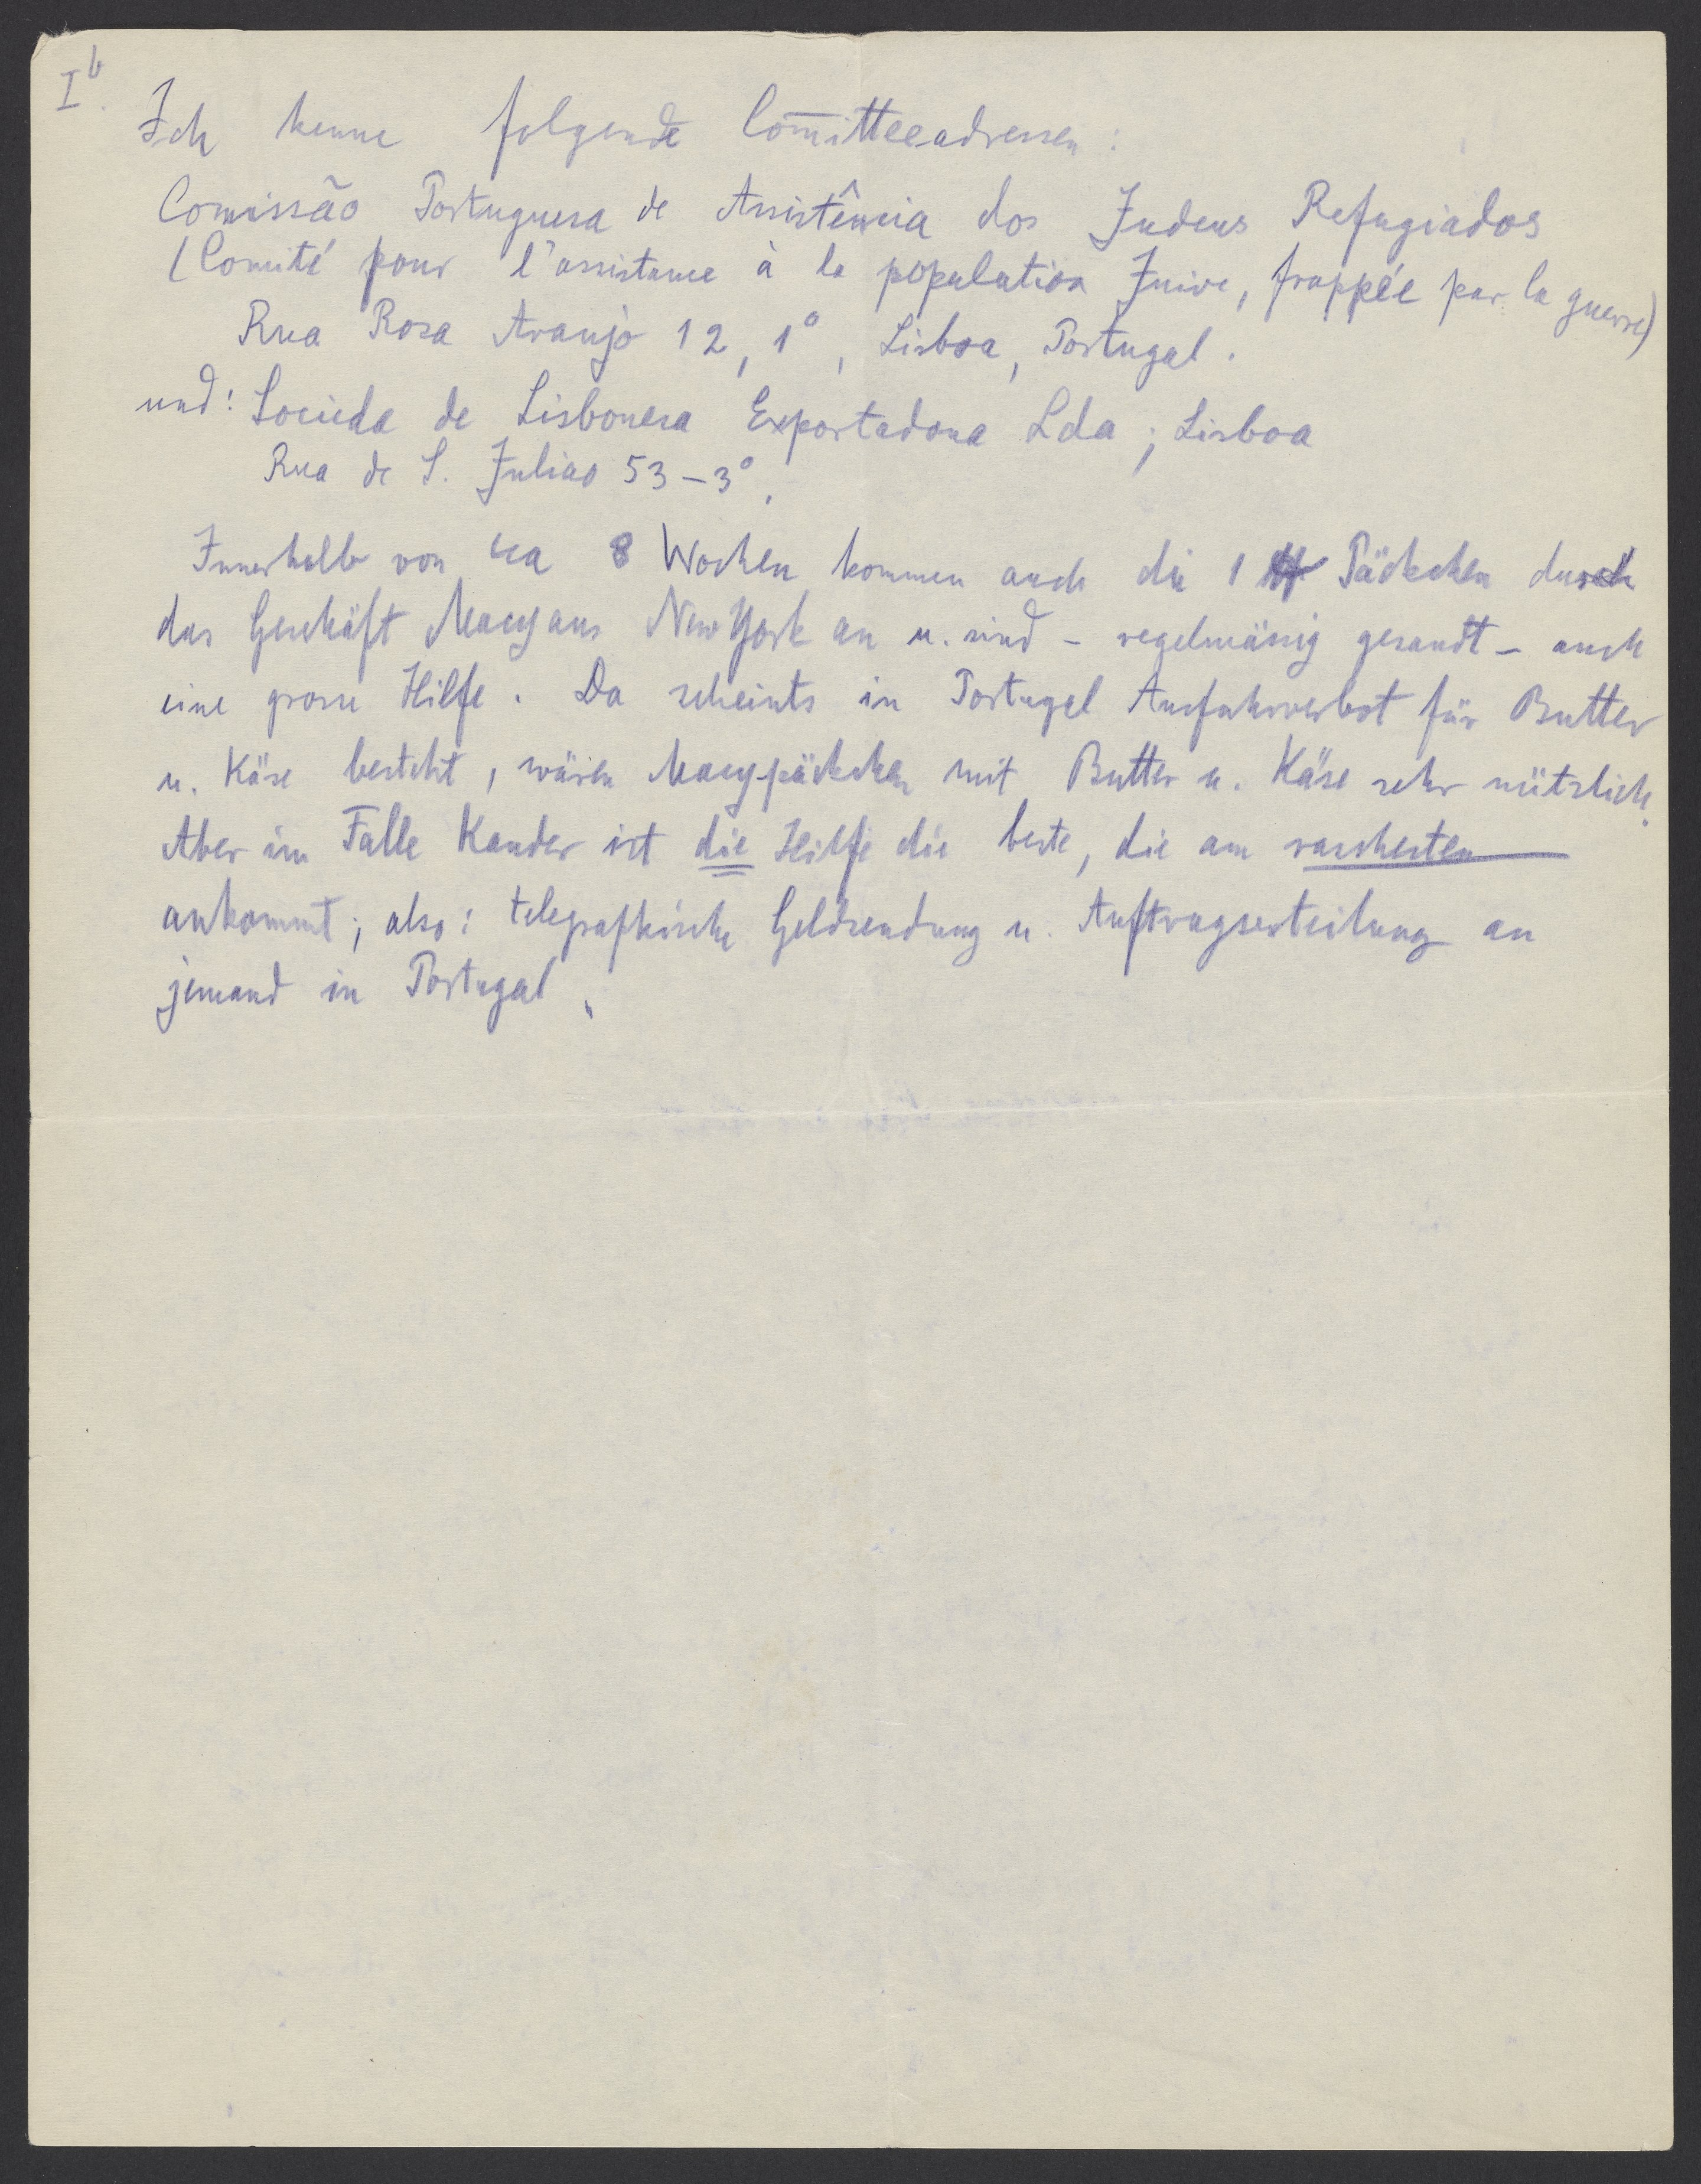 I b.
Ich kenne folgende Com̄itteeadressen:
Comissão Portuguesa de Assistência dos Judeus Refugiados
(Comité pour l'assistance à la population Juive, frappée par la guerre)
Rua Rosa Araujo 12, 1°, Lisboa, Portugal.
und: Socieda de Lisbonesa Exportadona Lda; Lisboa
Rua de S. Juliao 53-3°,
Innerhalb von ca 8 Wochen kommen auch die 1 ℔ Päckchen durch
das Geschäft Macy aus New York an u. sind - regelmässig gesandt - auch
eine grosse Hilfe. Da scheints in Portugal Ausfuhrverbot für Butter
u. Käse besteht, wären Macy-päckchen mit Butter u. Käse sehr nützlich.
Aber im Falle Kander ist die Hilfe die beste, die am raschesten
ankommt; also: telegraphische Geldsendung u. Auftragserteilung an
jemand in Portugal.